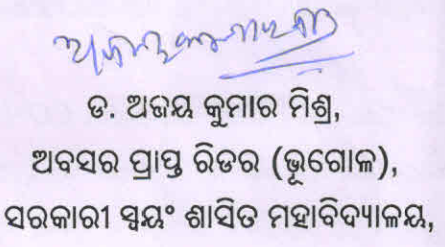 ଡ. ଅଜୟ କୁମାର ମିଶ୍ର,
ଅବସର ପ୍ରାପ୍ତ ରିଡର (ଭୂଗୋଳ),
ସରକାରୀ ସ୍ୱୟଂ ଶାସିତ ମହାବିଦ୍ୟାଳୟ,